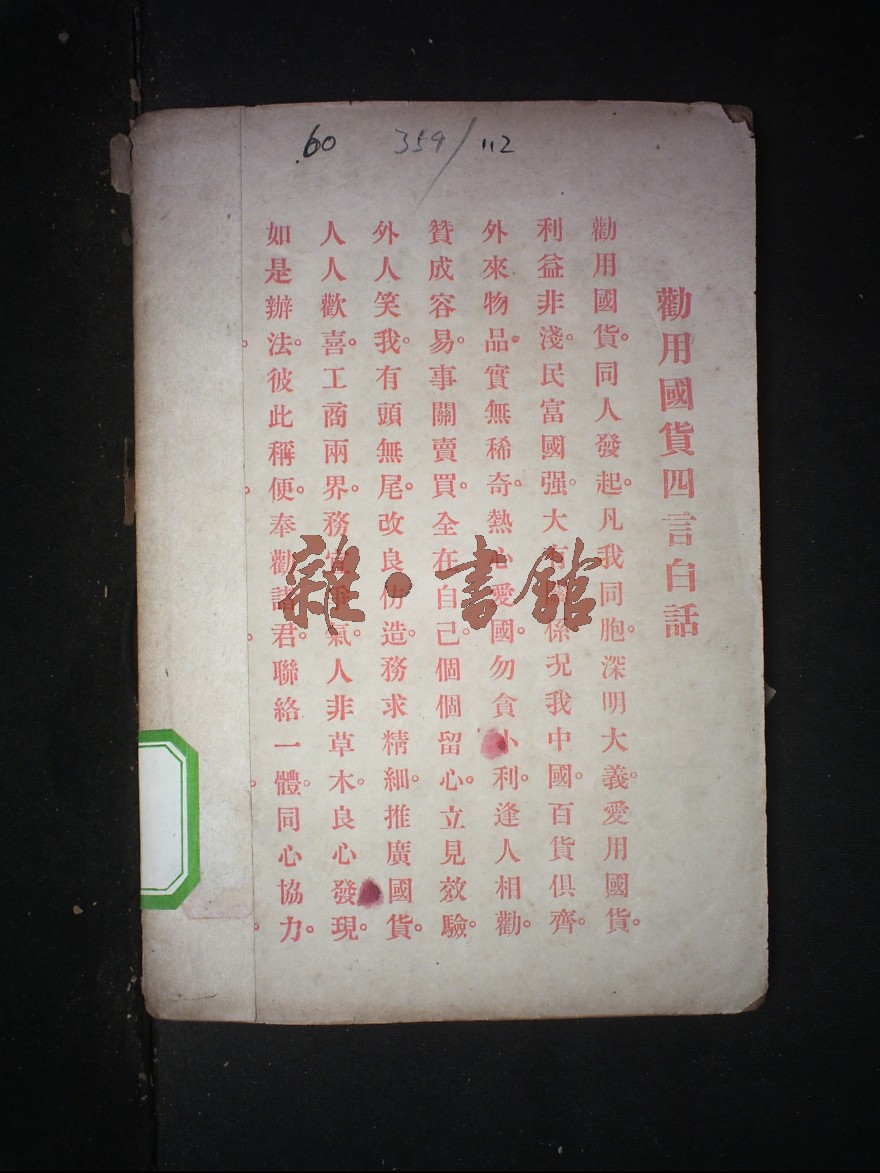 60 359/112
勸用國貨四言白話
勸用國貨。同人發起。凡我同胞。深明大義。愛用國貨。
利益非淺。民富國强。大有關係。况我中國。百貨俱齊。
外來物品。實無稀奇。熱心愛國。勿貪小利。逢人相勸。
贊成容易。事關賣買。全在自己。個個留心。立見效驗。
外人笑我。有頭無尾。改良仿造。務求精細。推廣國貨。
人人歡喜。工商兩界。務宜爭氣。人非草木。良心發現。
如是辦法。彼此稱便。奉勸諸君。聯絡一體。同心協力。
雜·書館